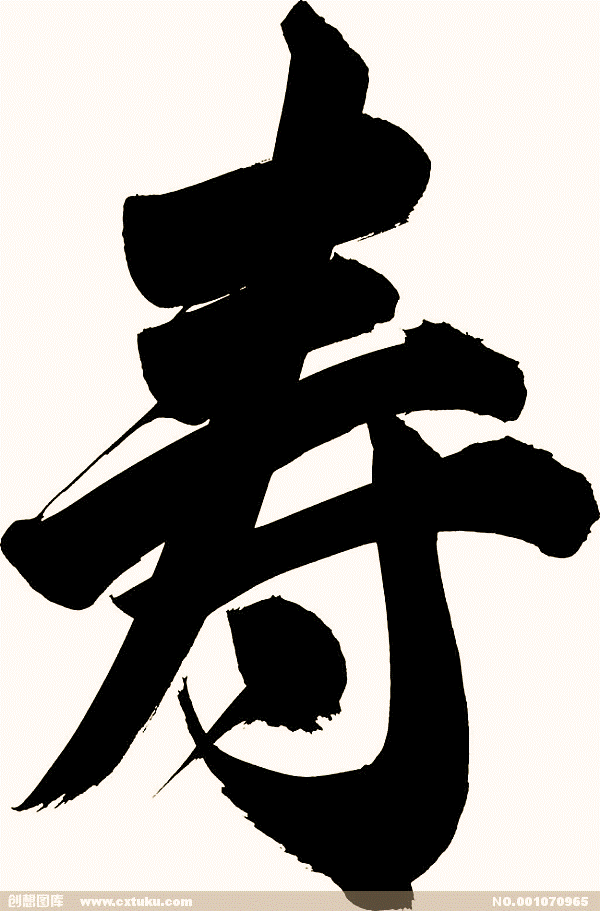 寿
创想图库 www.cxtuku.com NO.001070965